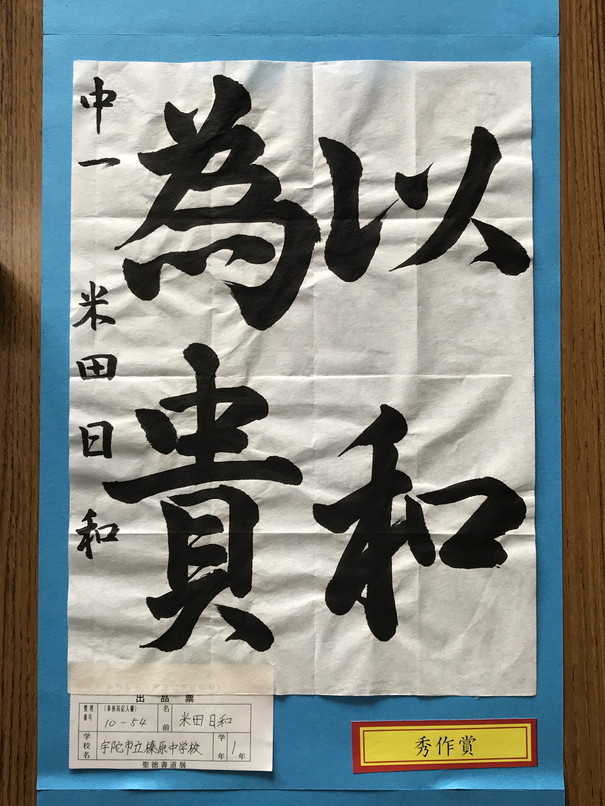 以和
為貴
中一 米田日和
出品票
整理番号 (事務局記入欄) 10-54 名前 米田日和
学校名 宇陀市立榛原中学校 学年 1年
聖徳書道展
秀作賞